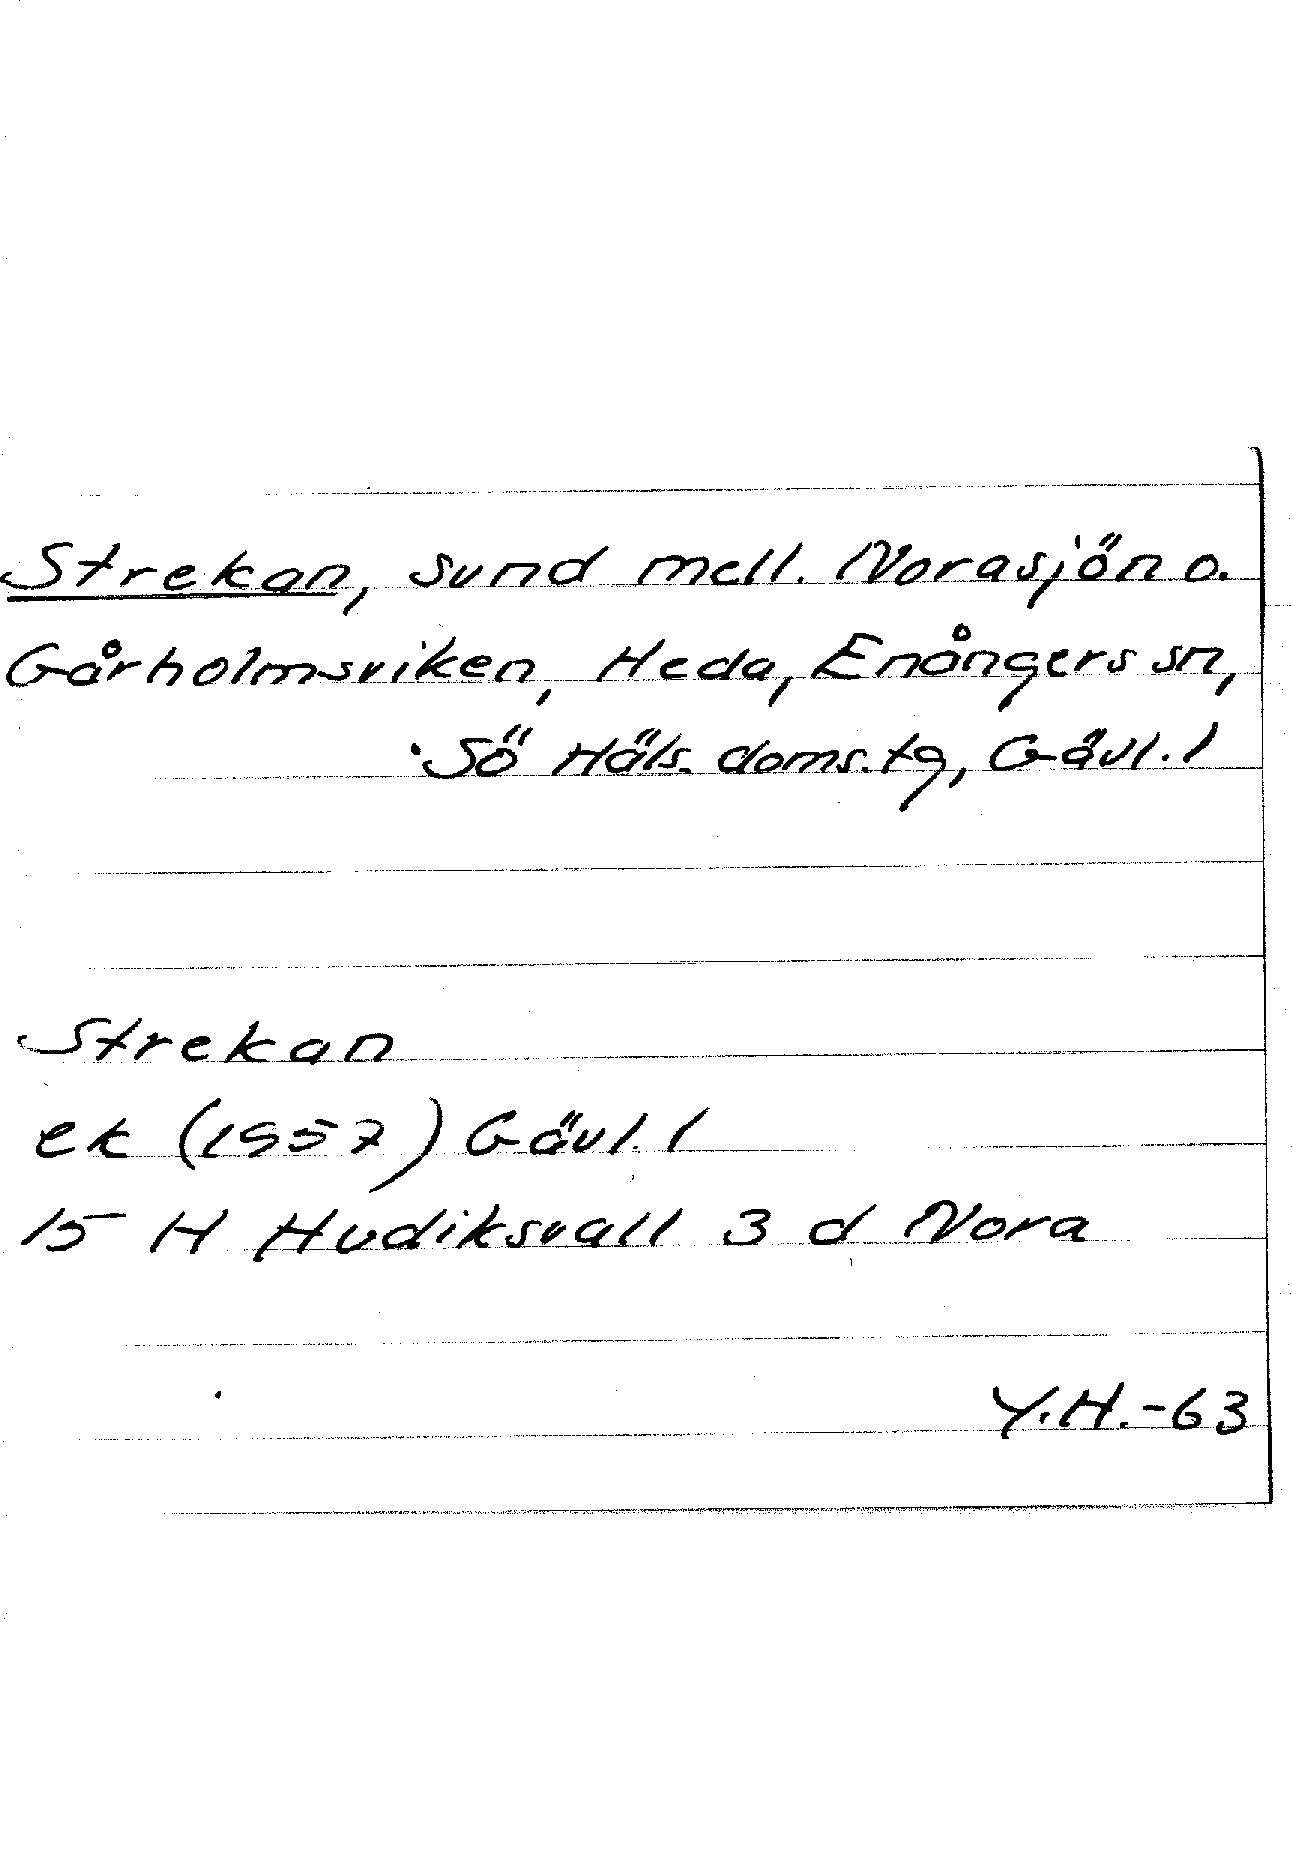 Strekan, sund mell. Norasjön o.
Gårholmsviken, Heda, Enångers sn,
Sö Häls. doms. tg, Gävl. l
Strekan
ek (1957) Gävl. l
15 H Hudiksvall 3 d Nora
Y.H.-63